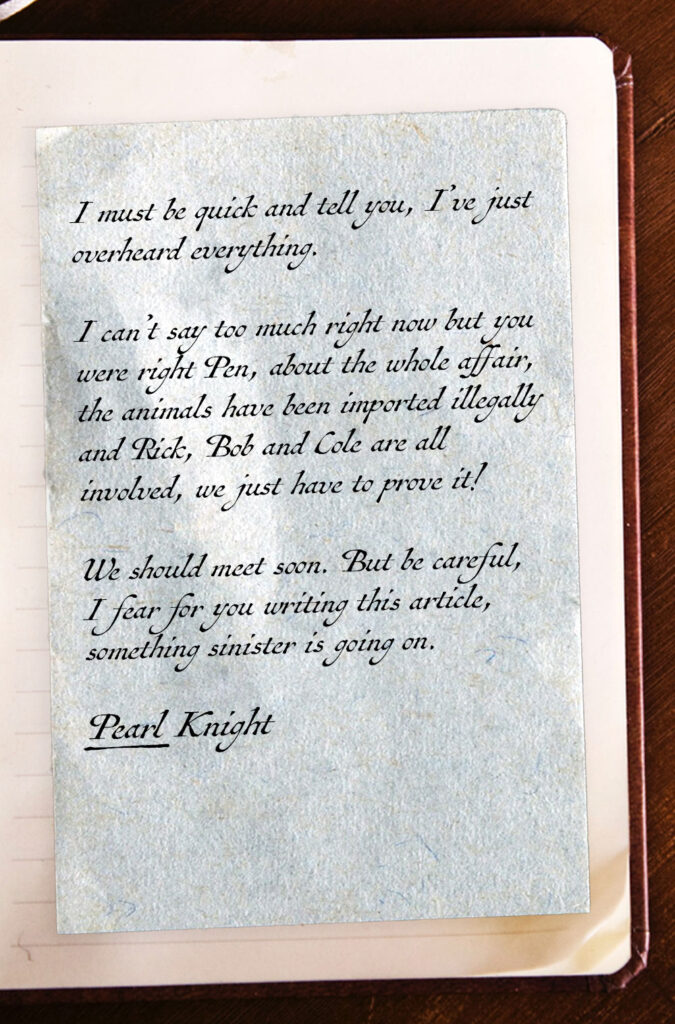 I must be quick and tell you, I've just
overheard everything.
I can't say too much right now but you
were right Pen, about the whole affair,
the animals have been imported illegally
and Rick, Bob and Cole are all
involved, we just have to prove it!
We should meet soon. But be careful,
I fear for you writing this article,
something sinister is going on.
Pearl Knight